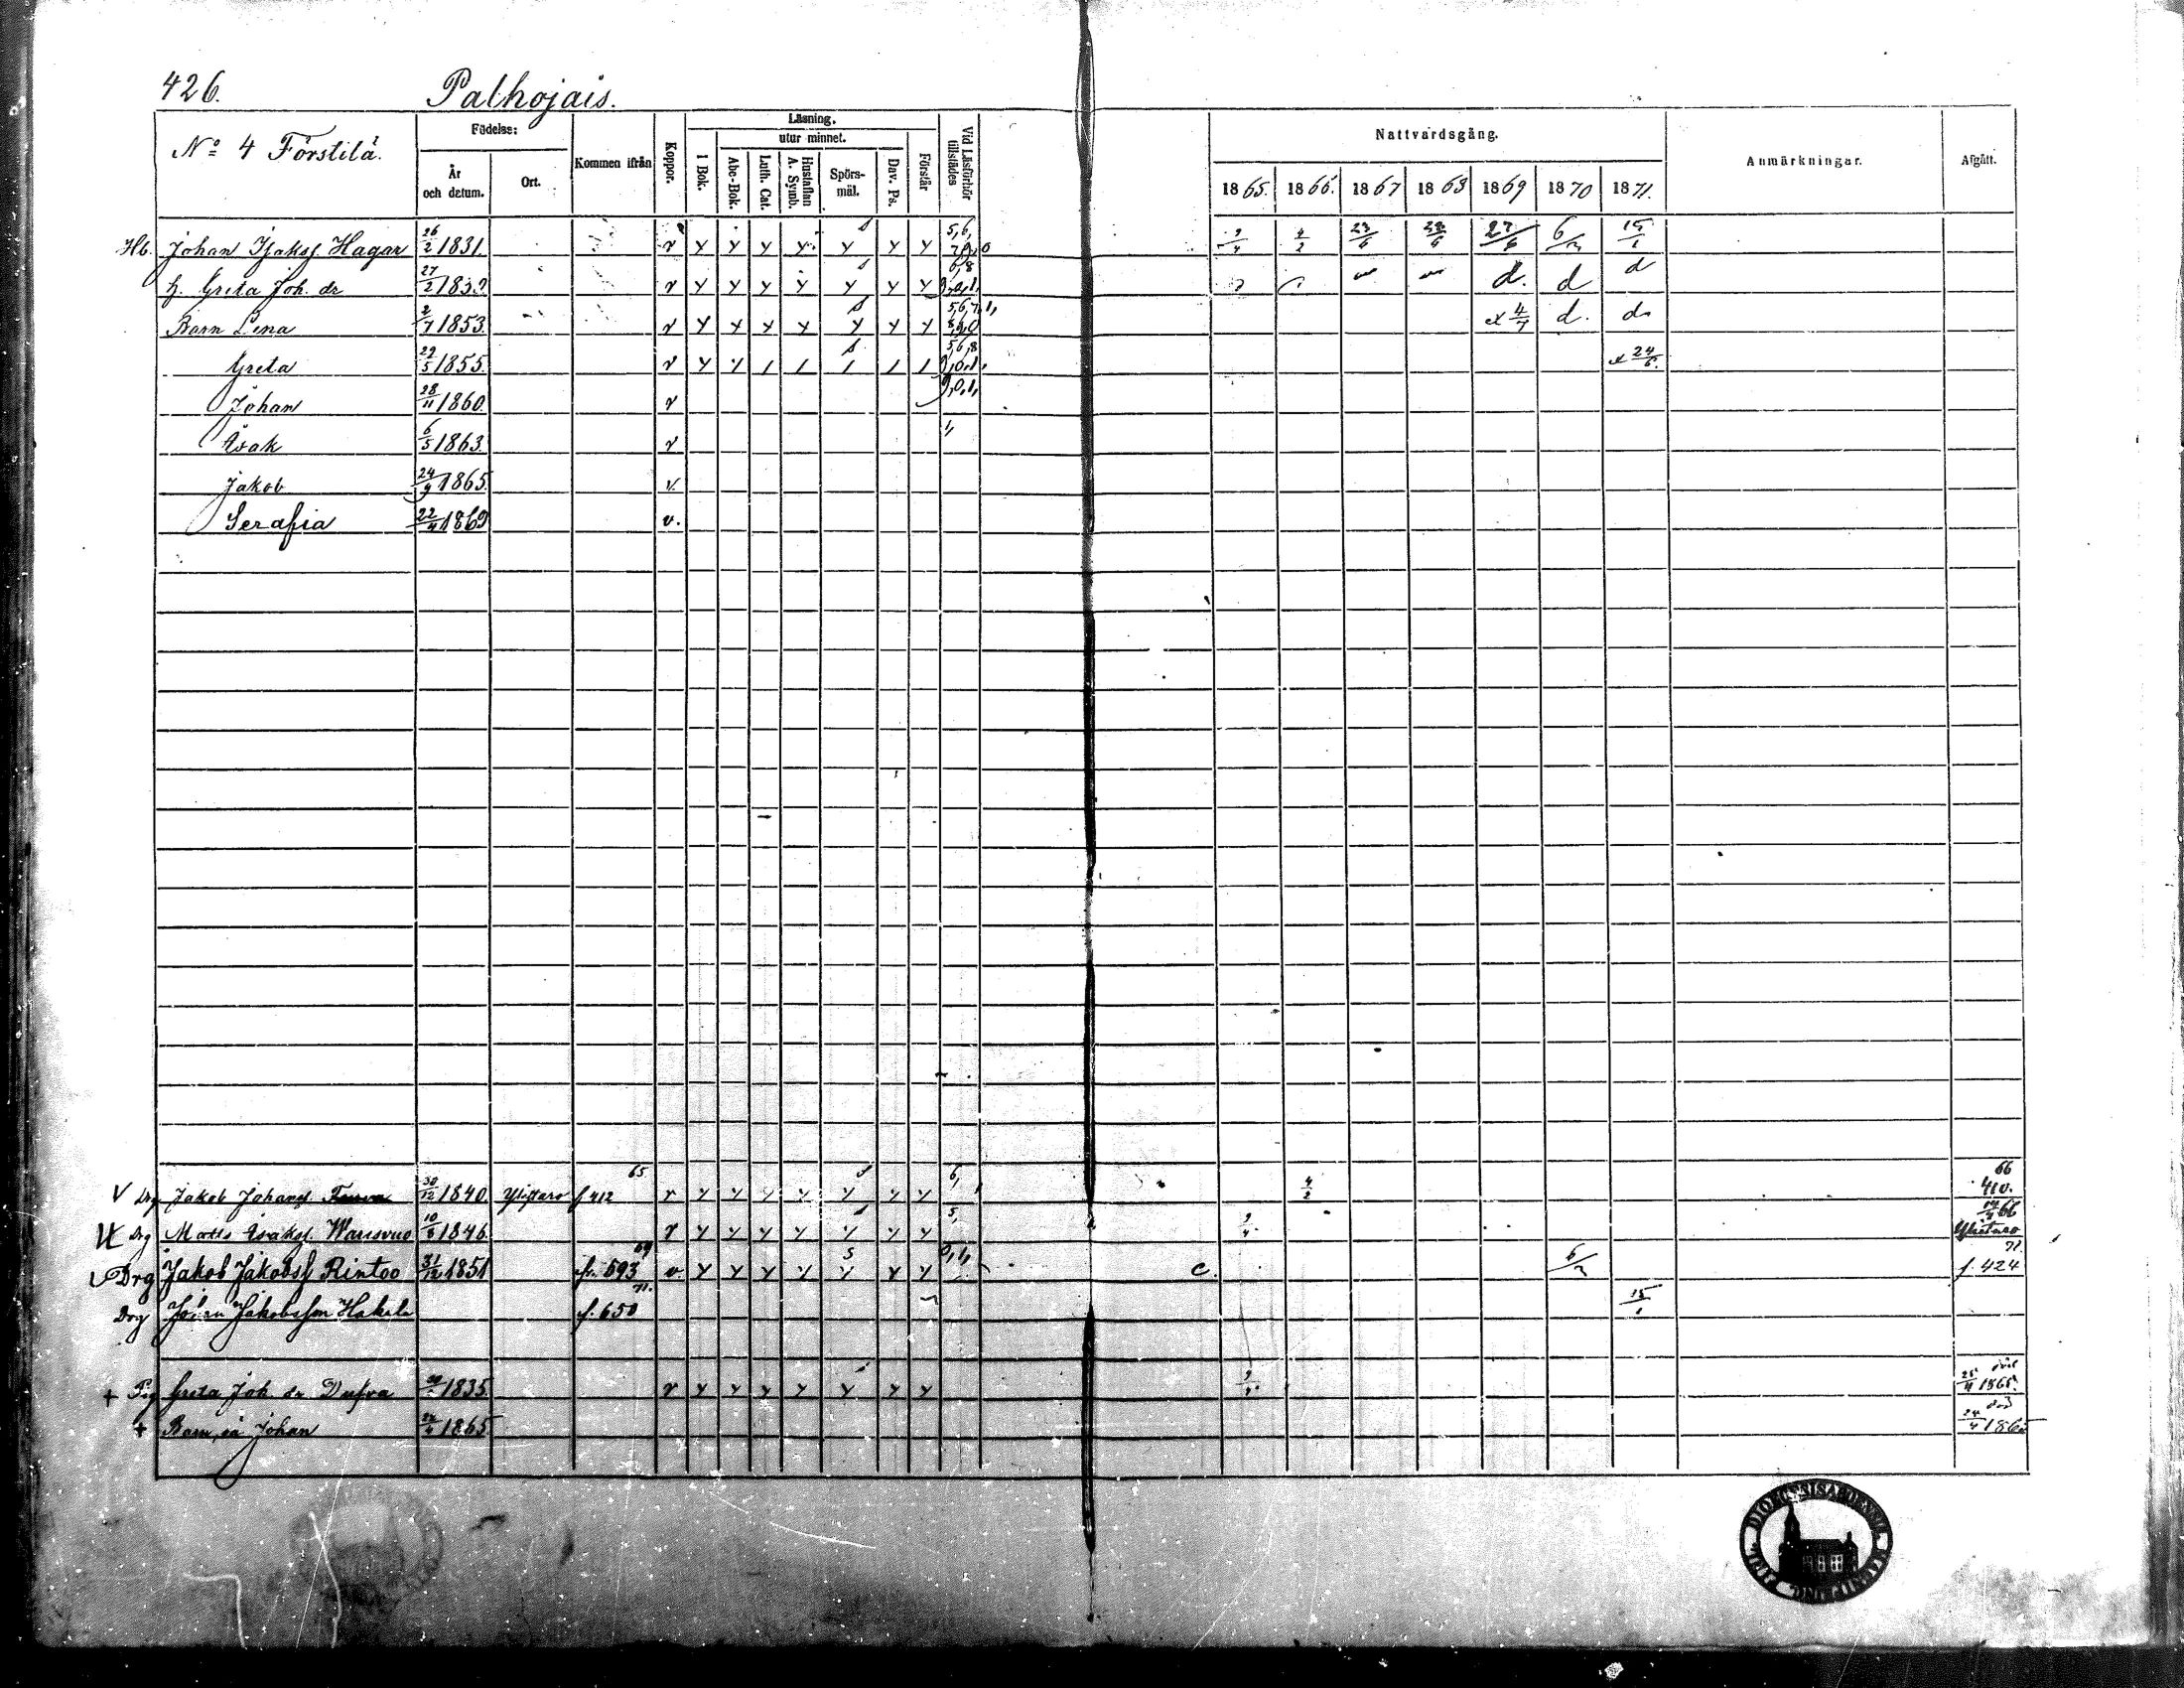 426. Palhojais.
No 4 Förstilä.
Födelse:
År och datum.
Ort.
Kommen ifrån
Koppor.
Läsning.
1 Bok.
utur minnet.
Abc-Bok.
Luth. Cat.
Hustaflan A. Symb.
Spörsmål.
Dav. Ps.
Förstår
Vid Läsförhör tillstädes
Nattvardsgång.
1865. 1866. 1867 1868 1869 1870 1871.
Anmärkningar.
Afgått.
Hb. Johan Isakss. Hagar 26/2 1831. v y y y y y y y 5,6, 4/2 23/6 27/6 6/2 15/1
h. Greta Joh. dr 27/2 v y y y y y y 6,8 d. d d
Barn Lena 2/7 1853. v y y y y y y y 5,6,7,1, 8,9,0 4/7 d. d
Greta 29/5 1855. v y y / / / / / 5,6,8 9,0,1, 24/6.
Johan 28/11 1860. v 9,0,1,
Isak 6/5 1863. v 1,
Jakob 24/9 1865. v.
Serafia 22/4 1869 v.
V Drg Jakob Johanss. 30/12 1840. Ylistaro f 412 65 v y y y y y y y 6, 4/2 66 410.
Drg Matts Isakss. 10/8 1846. v y y y y y y y 5, 66
Drg Jakob Jakobss Rintoo 31/12 1851 fr. 593 69 v. y y y y s y y y 0,1, c. 6/2 71. f. 424
Drg Johan Jakobsson Hakala f. 650 71. 15/1
+ Pig Greta Joh. dr Dufva 1835. v y y y y y y y död 25/4 1865.
+ Barn, oä Johan 22/4 1865. död 24/4 1865